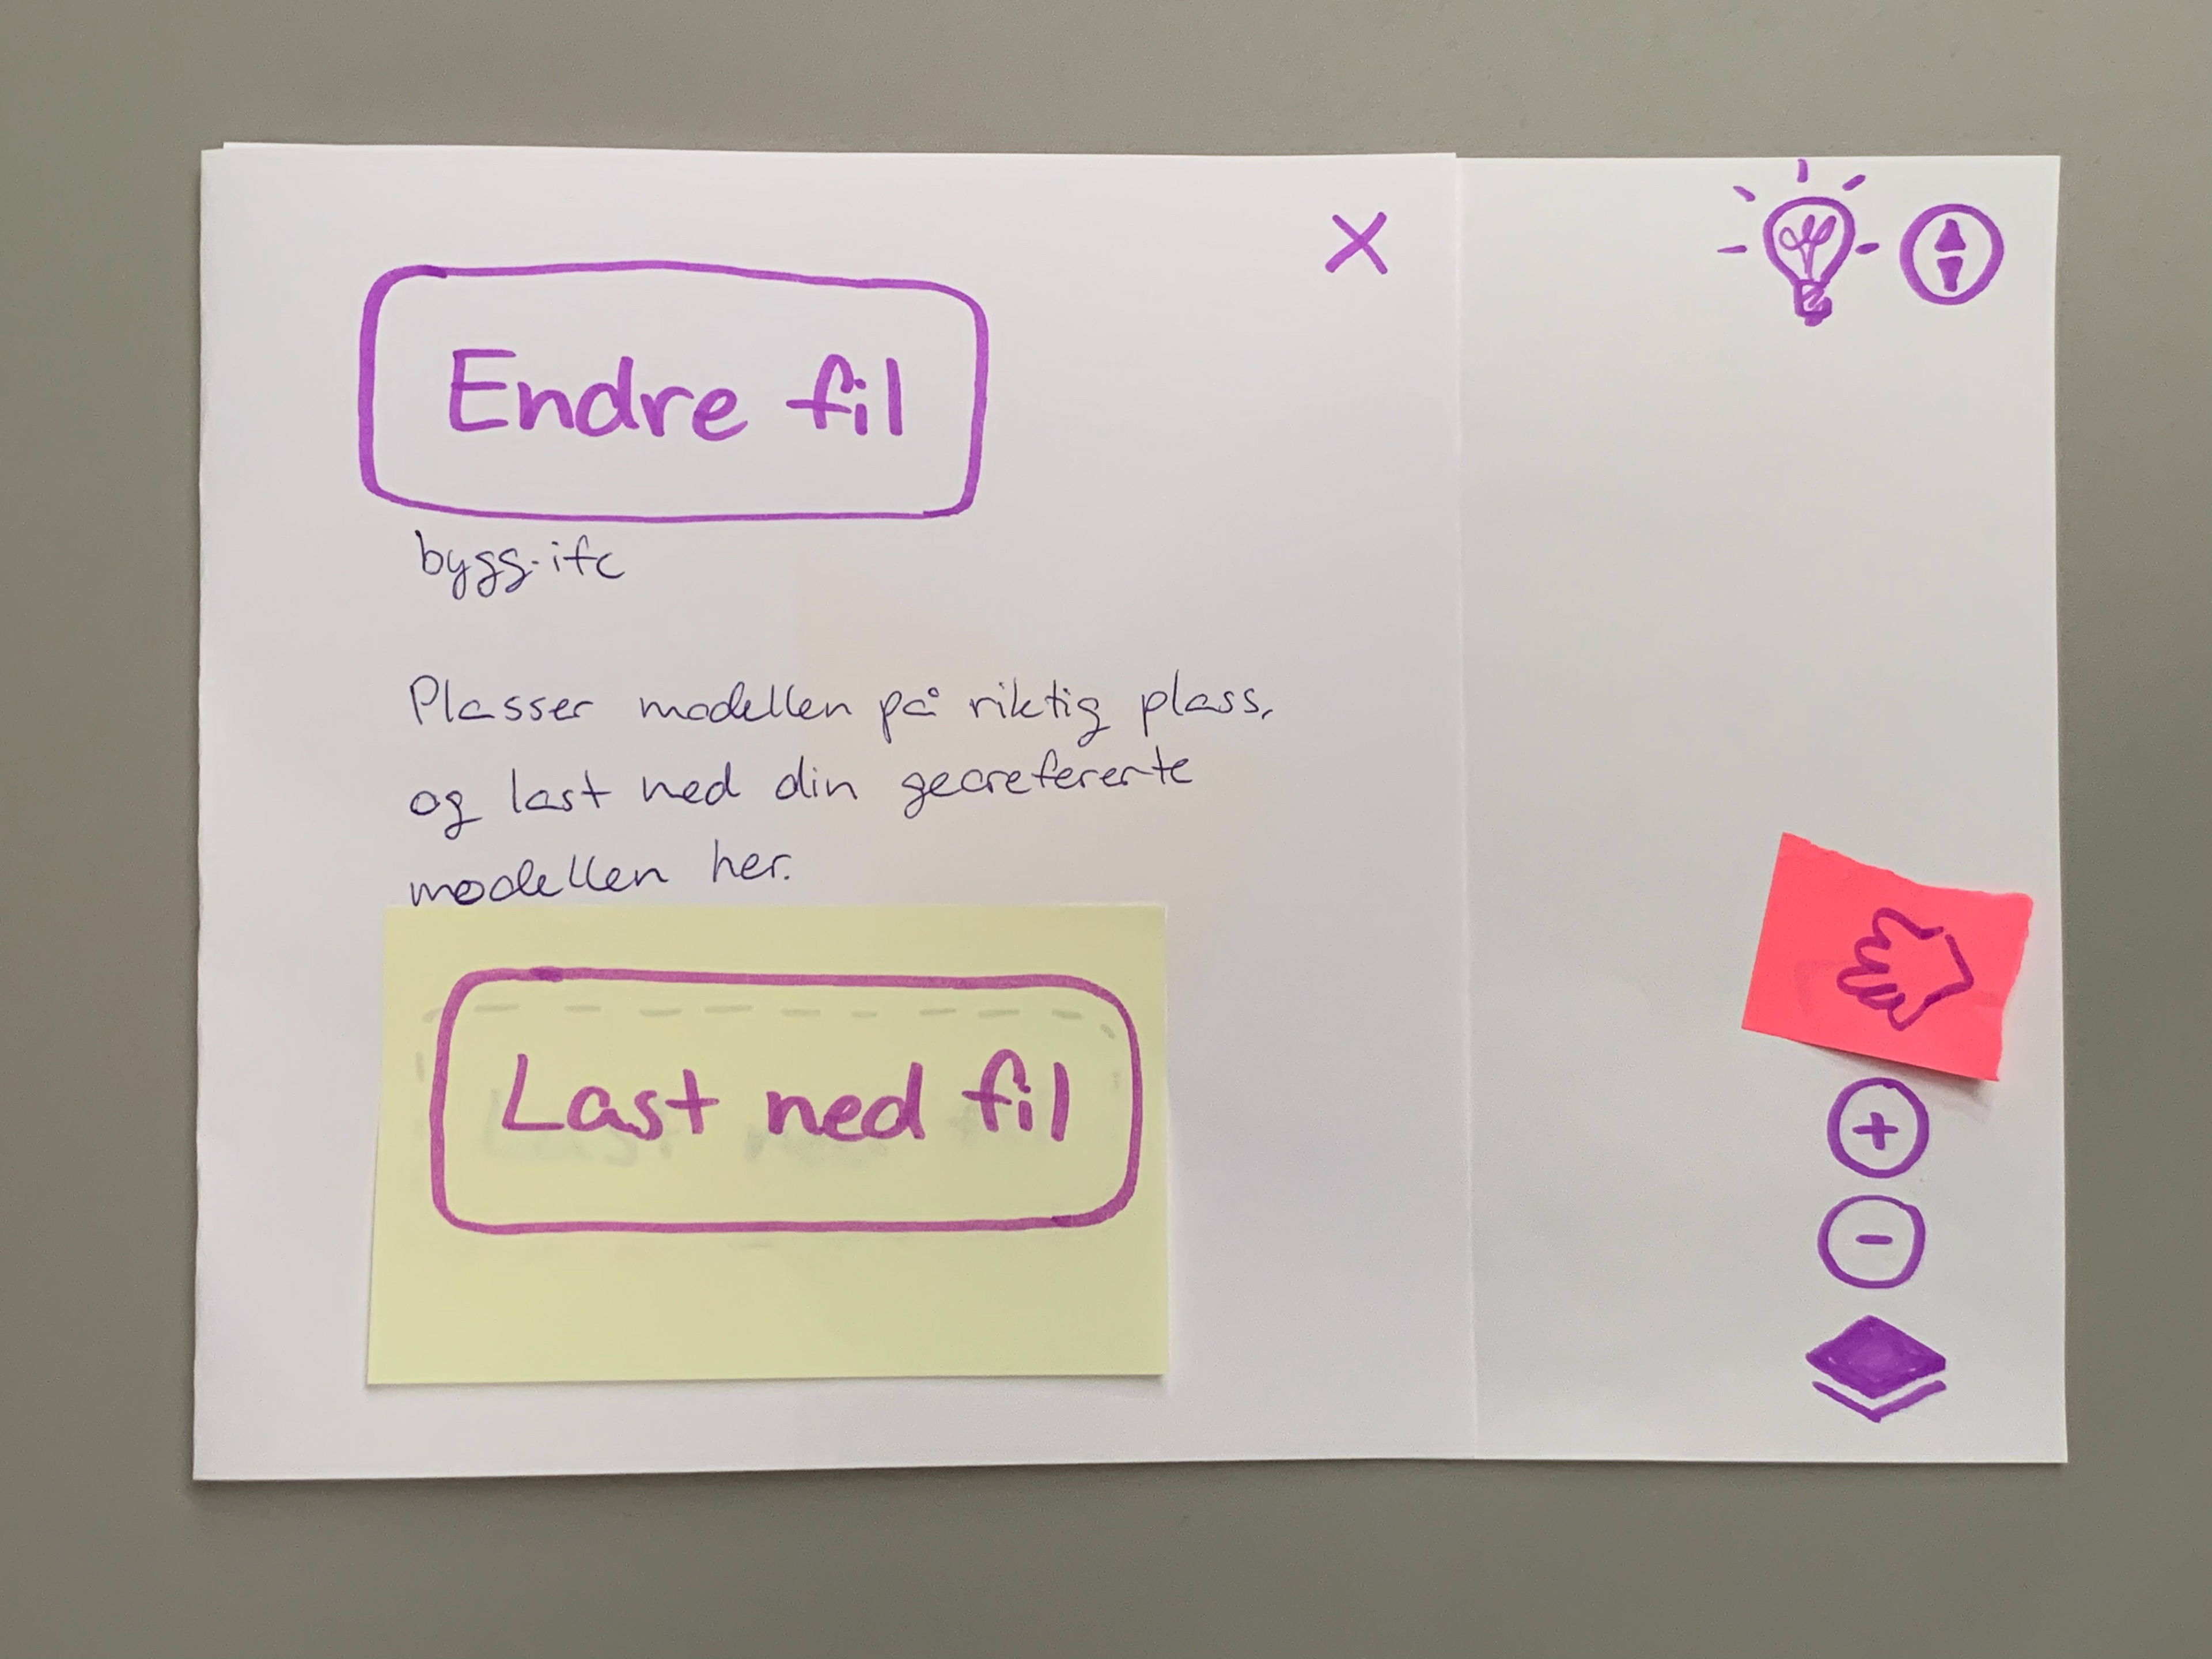 X
Endre fil
bygg.ifc
Plasser modellen på riktig plass,
og last ned din georefererte
modellen her.
Last ned fil
+
-